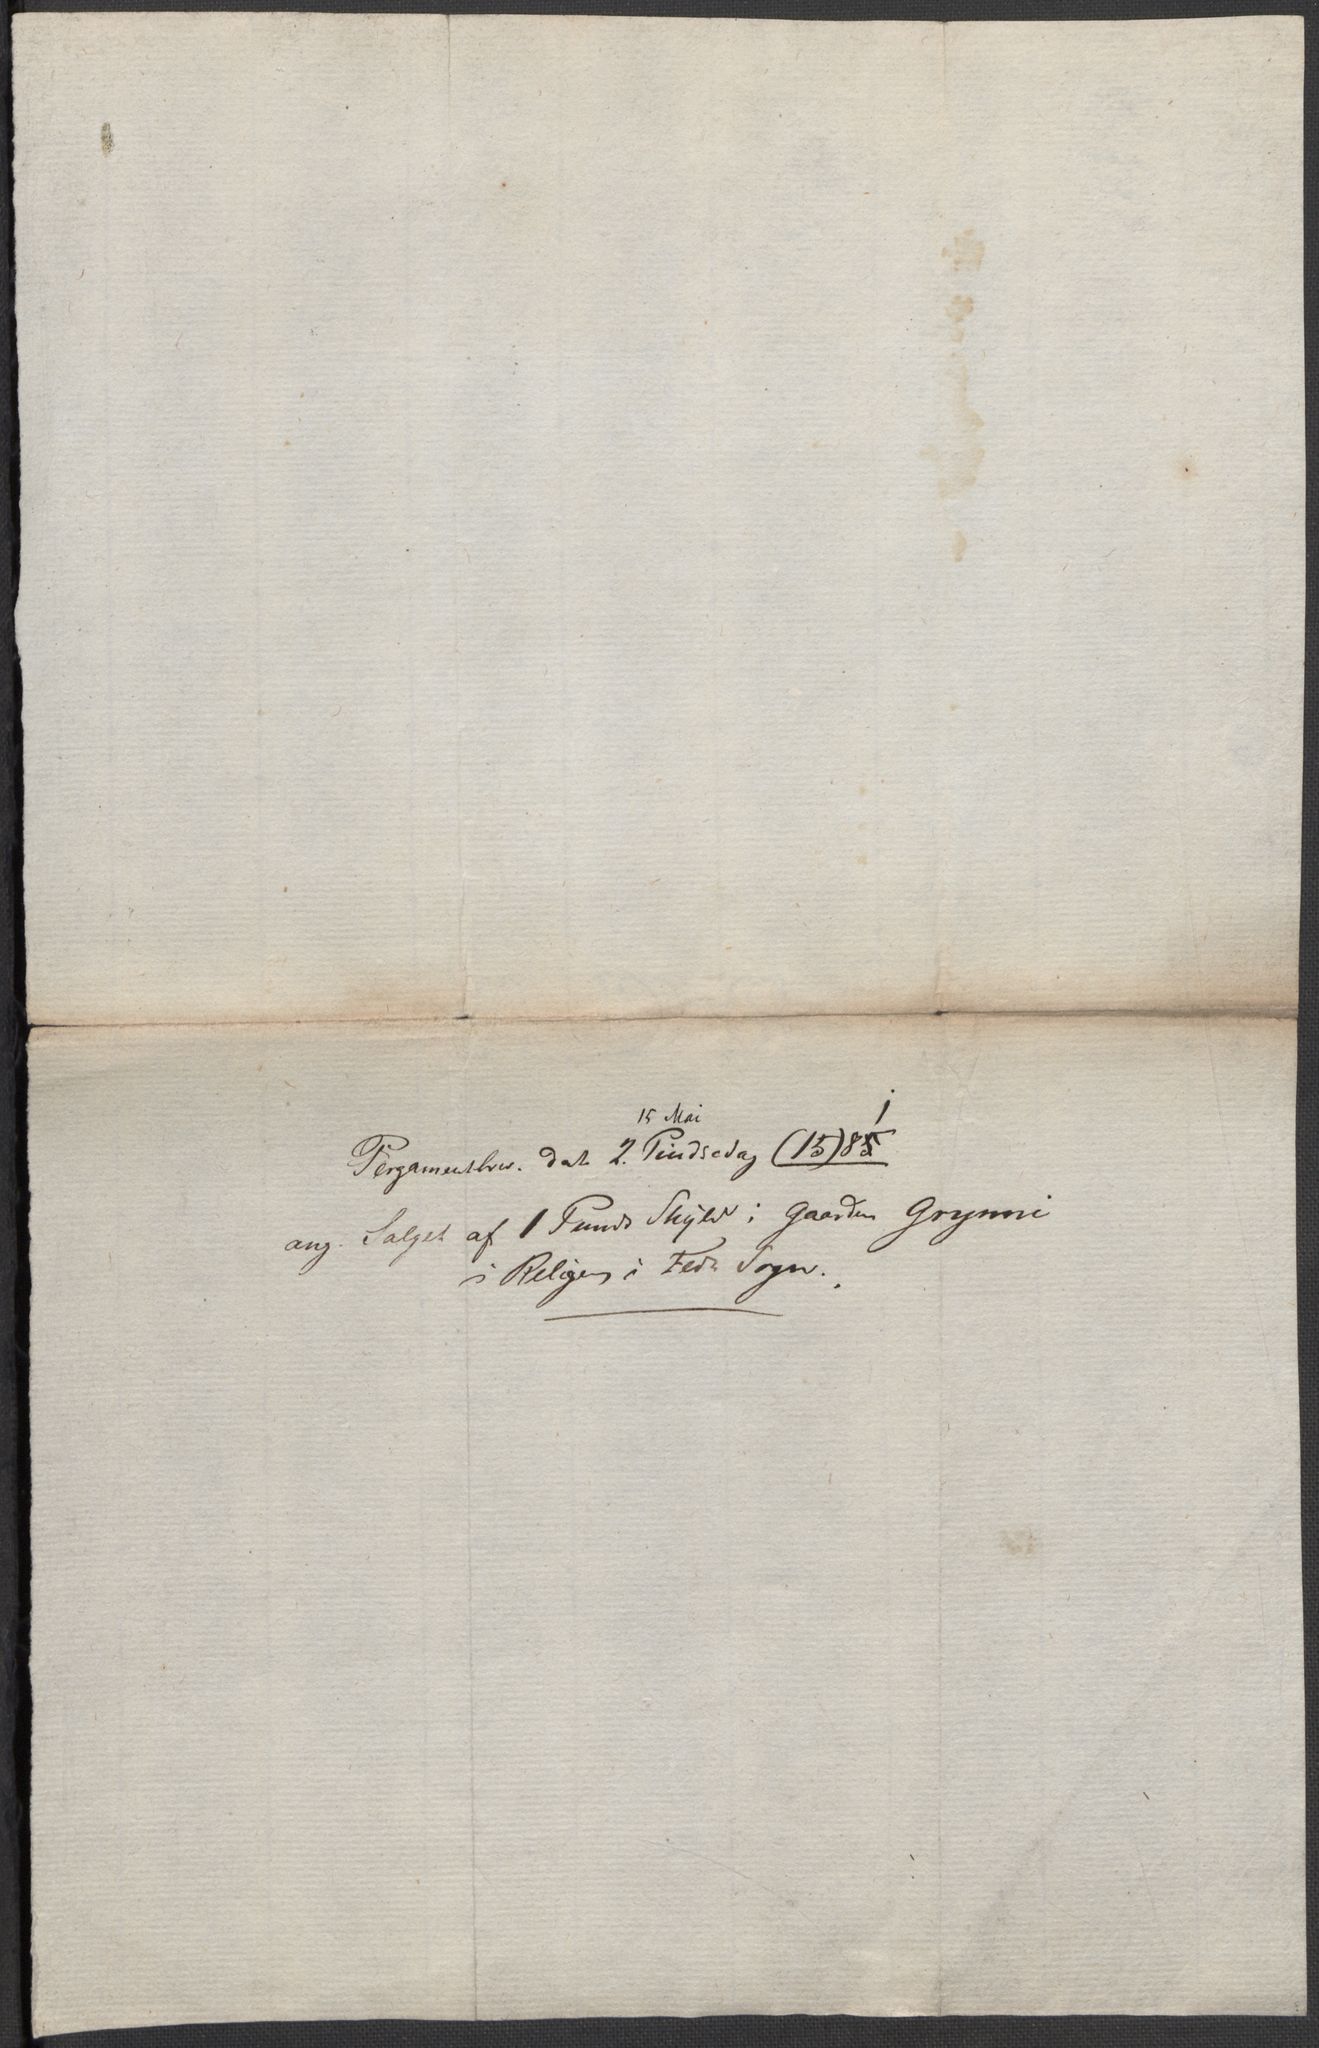 15 Mai 1
Pergamentbrev. dat 2. Pindsedag (15)85
ang. Salget af 1 Punds Skyld i Gaarden Grynni
i Religen i Feda Sogn.